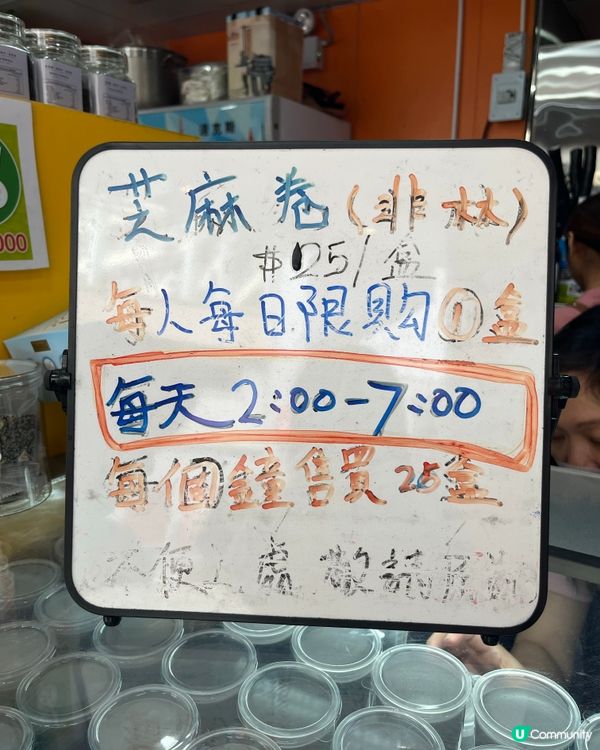 芝麻卷(非林)
$25/盒
每人每日限購①盒
每天 2:00-7:00
每個鐘售買25盒
不便之處 敬請原諒
000
U Community